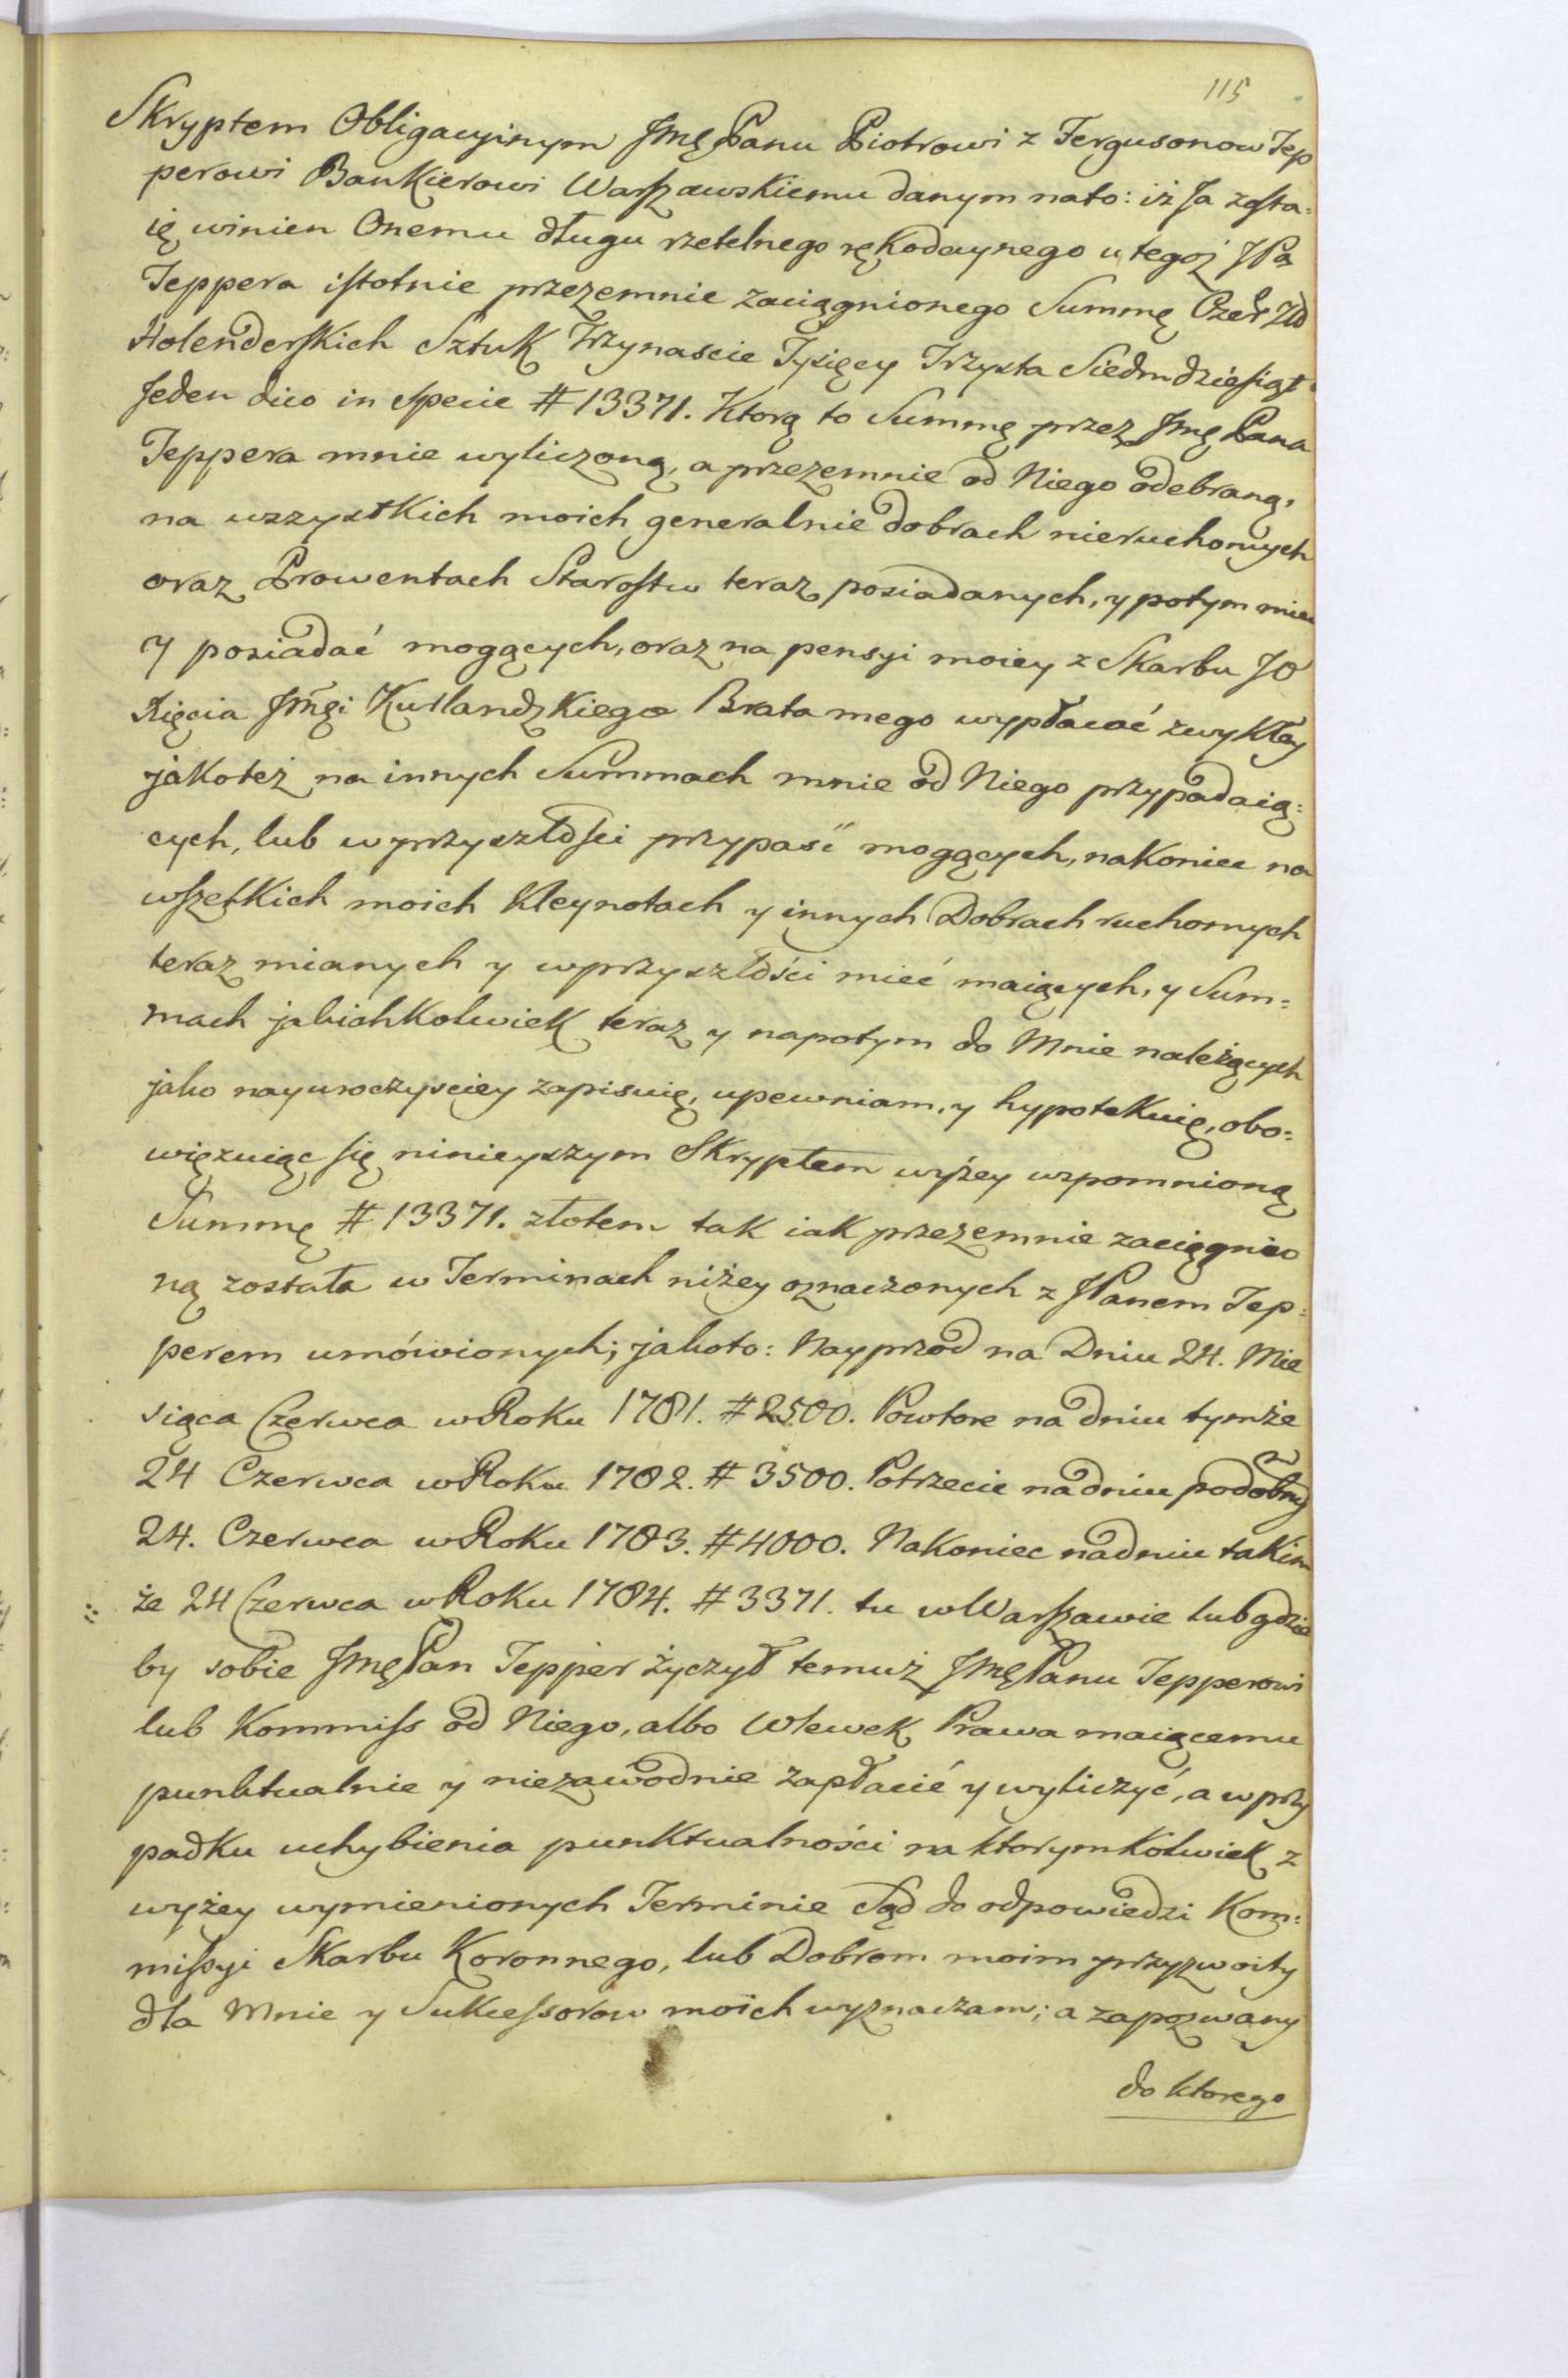 115
Skryptem Obligacyinym Jmę Panu Piotrowi z Fergusonow Tep
perowi Bankierowi Warszawskiemu danym nato: iż Ja zosta:
ię winien Onemu długu rzetelnego rękodaynego u tegoż JPa
Teppera istotnie przezemnie zaciągnionego Summę Czer Zło
Holenderskich Sztuk Trzynascie Tysięcy Trzysta Siedmdziesiąt
Jeden dico in specie # 13371. Ktorą to Summę przez Jmę Pana
Teppera mnie wyliczoną, a przezemnie od Niego odebraną,
na wszystkich moich generalnie dobrach nieruchomych
oraz Prowentach Starostw teraz posiadanych, y potym miec
y posiadać mogących, oraz na pensyi moiey z Skarbu JO
Xięcia Jmęi Kurlandzkiego Brata mego wypłacać zwykłey
jakoteż na innych Summach mnie od Niego przypadaią:
cych, lub w przyszłosci przypaść mogących, nakoniec na
wszelkich moich Kleynotach y innych Dobrach ruchomych
teraz mianych y w przyszłości mieć maiących, y Sum=
mach jakichkolwiek teraz y napotym do Mnie należących
jako nayuroczysciey zapisuię, upewniam, y hypotekuię, obo=
więzuiąc się ninieyszym Skryptem wyżey wspomnioną
Summę # 13371. złotem tak iak przezemnie zaciągnio
ną została w Terminach niżey oznaczonych z JPanem Tep=
perem umówionych; jakoto: Nayprzod na Dniu 24. Mie
siąca Czerwca w Roku 1781. # 2500. Powtore na dniu tymże
24 Czerwca w Roku 1782. # 3500. Potrzecie na dniu podobny
24. Czerwca w Roku 1783. # 4000. Nakoniec na dniu takim
że 24 Czerwca w Roku 1784. # 3371. tu w Warszawie lub gdzie
by sobie Jmę Pan Tepper życzył temuż Jmę Panu Tepperowi
lub Kommiss od Niego, albo Wlewek Prawa maiącemu
punktualnie y niezawodnie zapłacić y wyliczyć, a w przy
padku uchybienia punktualności na ktorymkolwiek z
wyżey wymienionych Terminie Sąd do odpowiedzi Kom=
missyi Skarbu Koronnego, lub Dobrom moim przyzwoity
dla Mnie y Sukcessorow moich wyznaczam; a zapozwany
do ktorego